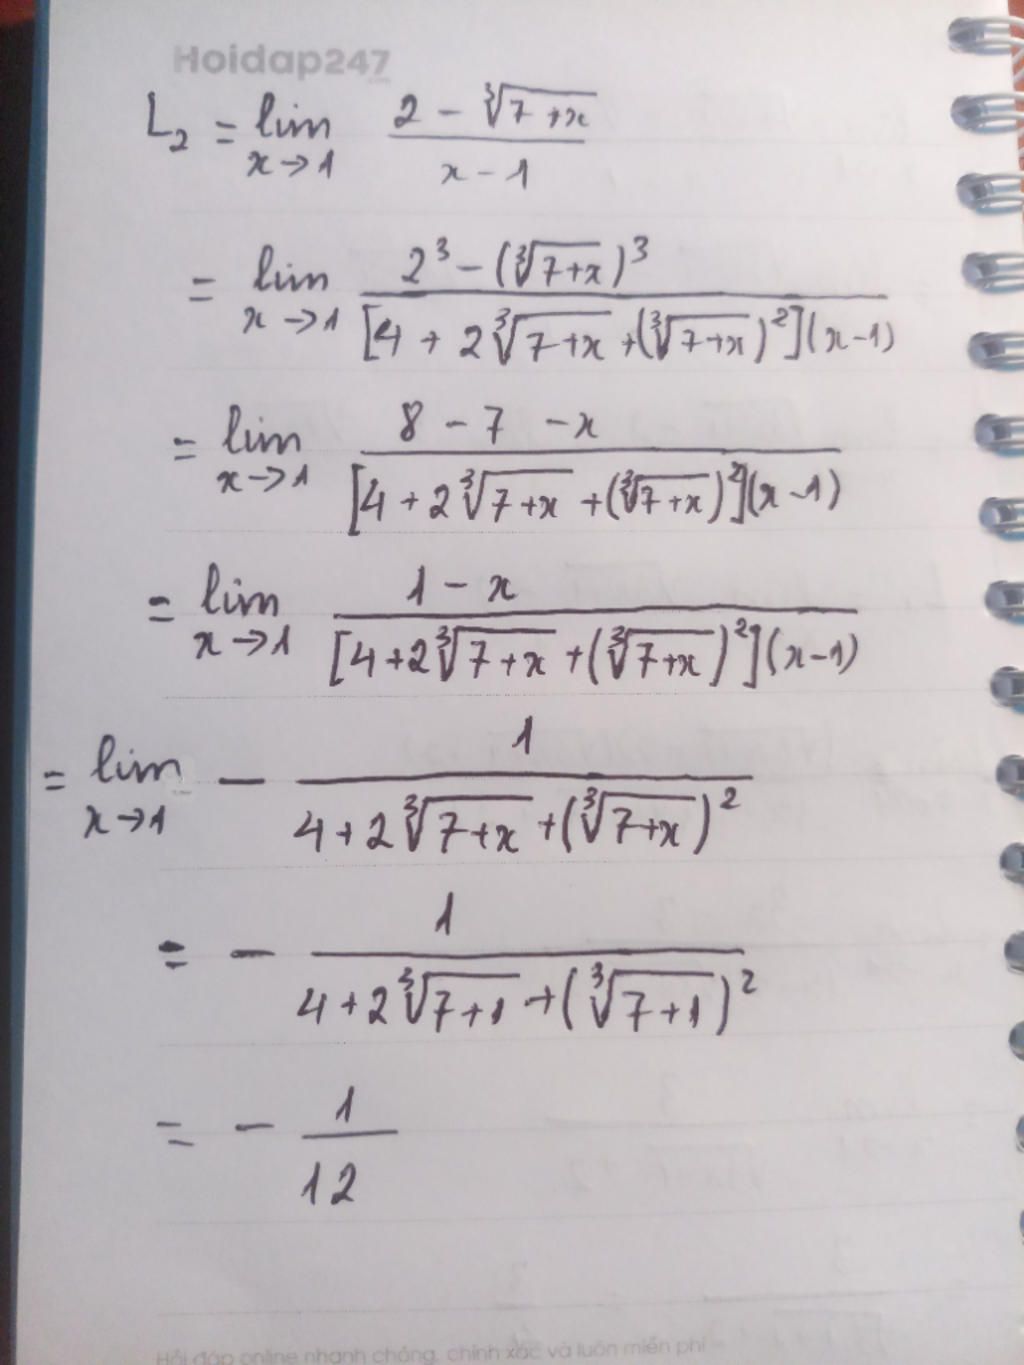 Hoidap247
.com
L₂ = lim x→1 (2 - ∛(7+x)) / (x-1)
= lim x→1 (2³ - (∛(7+x))³) / ([4 + 2∛(7+x) + (∛(7+x))²](x-1))
= lim x→1 (8 - 7 - x) / ([4 + 2∛(7+x) + (∛(7+x))²](x-1))
= lim x→1 (1 - x) / ([4+2∛(7+x) + (∛(7+x))²](x-1))
= lim x→1 - 1 / (4+2∛(7+x) + (∛(7+x))²)
= - 1 / (4+2∛(7+1) + (∛(7+1))²)
= - 1/12
Hỏi đáp online nhanh chóng, chính xác và luôn miễn phí